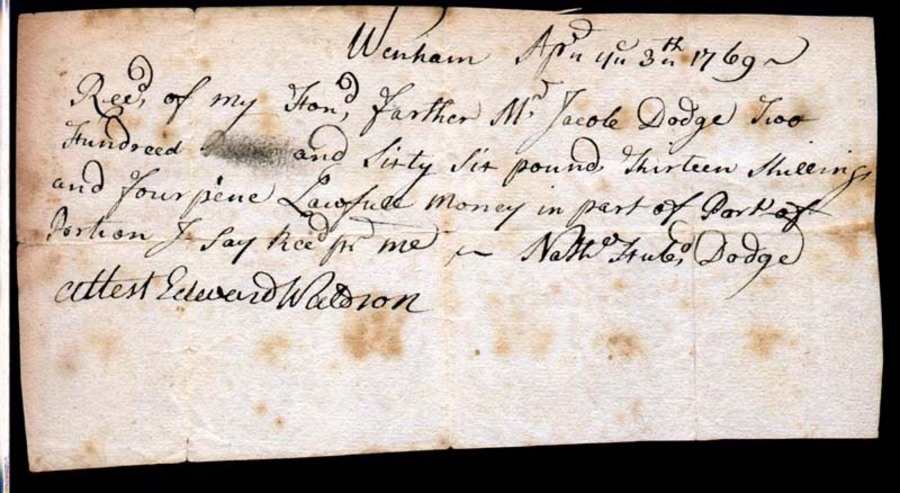 Wenham Apr 3th 1769
Recd of my Hond farther Mr Jacob Dodge Two
Hundreed and Sixty Six pound Thirteen Shillings
and fourpene Lawfull money in part of Part of
Portion I Say Recd pr me Dodge
attest Edward Waldron